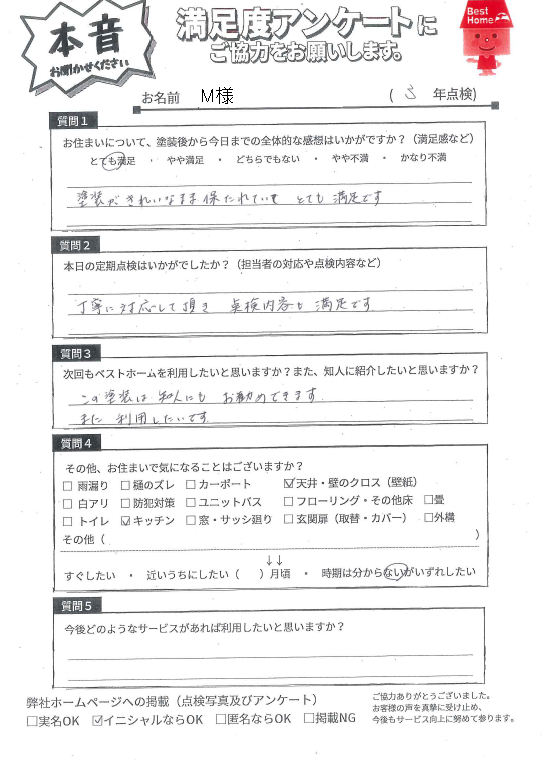 本音
お聞かせください
満足度アンケートに
ご協力をお願いします。
Best Home
お名前 M様 ( 5 年点検)
質問1
お住まいについて、塗装後から今日までの全体的な感想はいかがですか?(満足感など)
とても満足 ・ やや満足 ・ どちらでもない ・ やや不満 ・ かなり不満
塗装がきれいなまま保たれていて とても満足です
質問2
本日の定期点検はいかがでしたか?(担当者の対応や点検内容など)
丁寧に対応して頂き 点検内容も満足です
質問3
次回もベストホームを利用したいと思いますか?また、知人に紹介したいと思いますか?
この塗装は 知人にも お勧めできます.
また 利用したいです
質問4
その他、お住まいで気になることはございますか?
□ 雨漏り □ 樋のズレ □ カーポート ☑天井・壁のクロス(壁紙)
□ 白アリ □ 防犯対策 □ ユニットバス □ フローリング・その他床 □畳
□ トイレ ☑キッチン □ 窓・サッシ廻り □ 玄関扉(取替・カバー) □外構
その他( )
↓↓
すぐしたい ・ 近いうちにしたい( )月頃 ・ 時期は分からないがいずれしたい
質問5
今後どのようなサービスがあれば利用したいと思いますか?
弊社ホームページへの掲載(点検写真及びアンケート)
□実名OK ☑イニシャルならOK □匿名ならOK □掲載NG
ご協力ありがとうございました。
お客様の声を真摯に受け止め、
今後もサービス向上に努めて参ります。